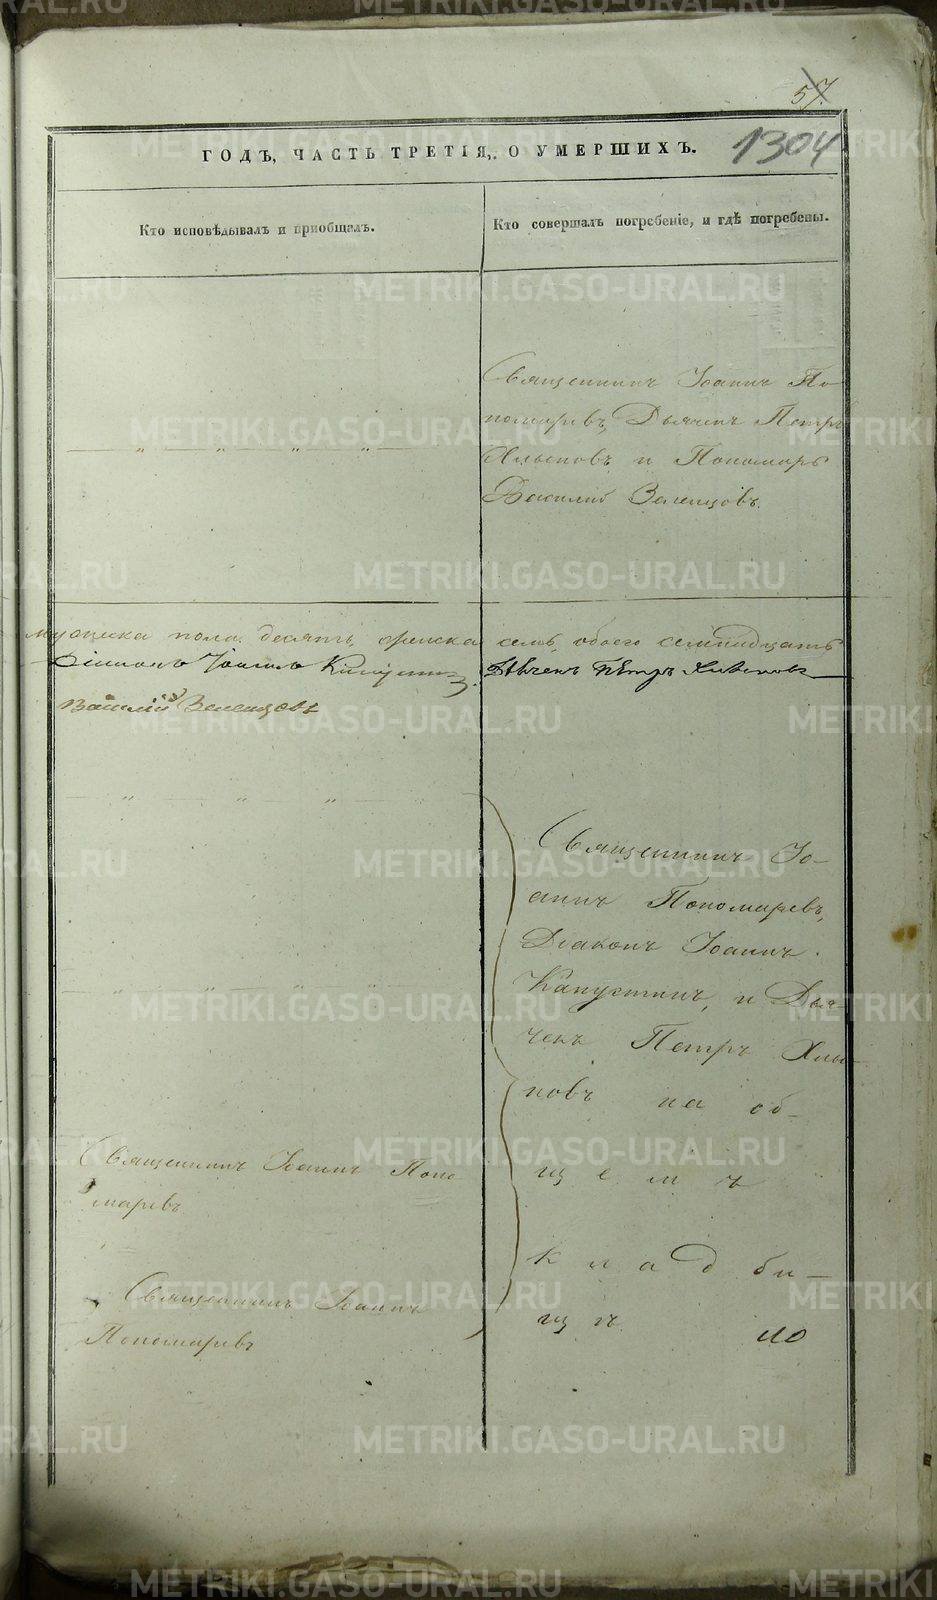 57.
1304
ГОДЪ, ЧАСТЬ ТРЕТІЯ, О УМЕРШИХЪ.
Кто исповѣдывалъ и пріобщалъ.
Кто совершалъ погребеніе, и гдѣ погребены.
Священникъ Іоаннъ По-
номаревъ, Дьячекъ Петръ
Хлыновъ и Пономарь
Василій Зеленцовъ.
мужеска пола десять, женска семь, обоего семнадцать
Діаконъ Іоаннъ Капустинъ
Дьячекъ Петръ Хлыновъ
Василій Зеленцовъ
Священникъ Іо-
аннъ Пономаревъ,
Діаконъ Іоаннъ
Капустинъ, и Дья-
чекъ Петръ Хлы-
новъ на об-
щемъ
кладби-
щѣ
Священникъ Іоаннъ Поно
маревъ
Священникъ Іоаннъ
Пономаревъ
METRIKI.GASO-URAL.RU